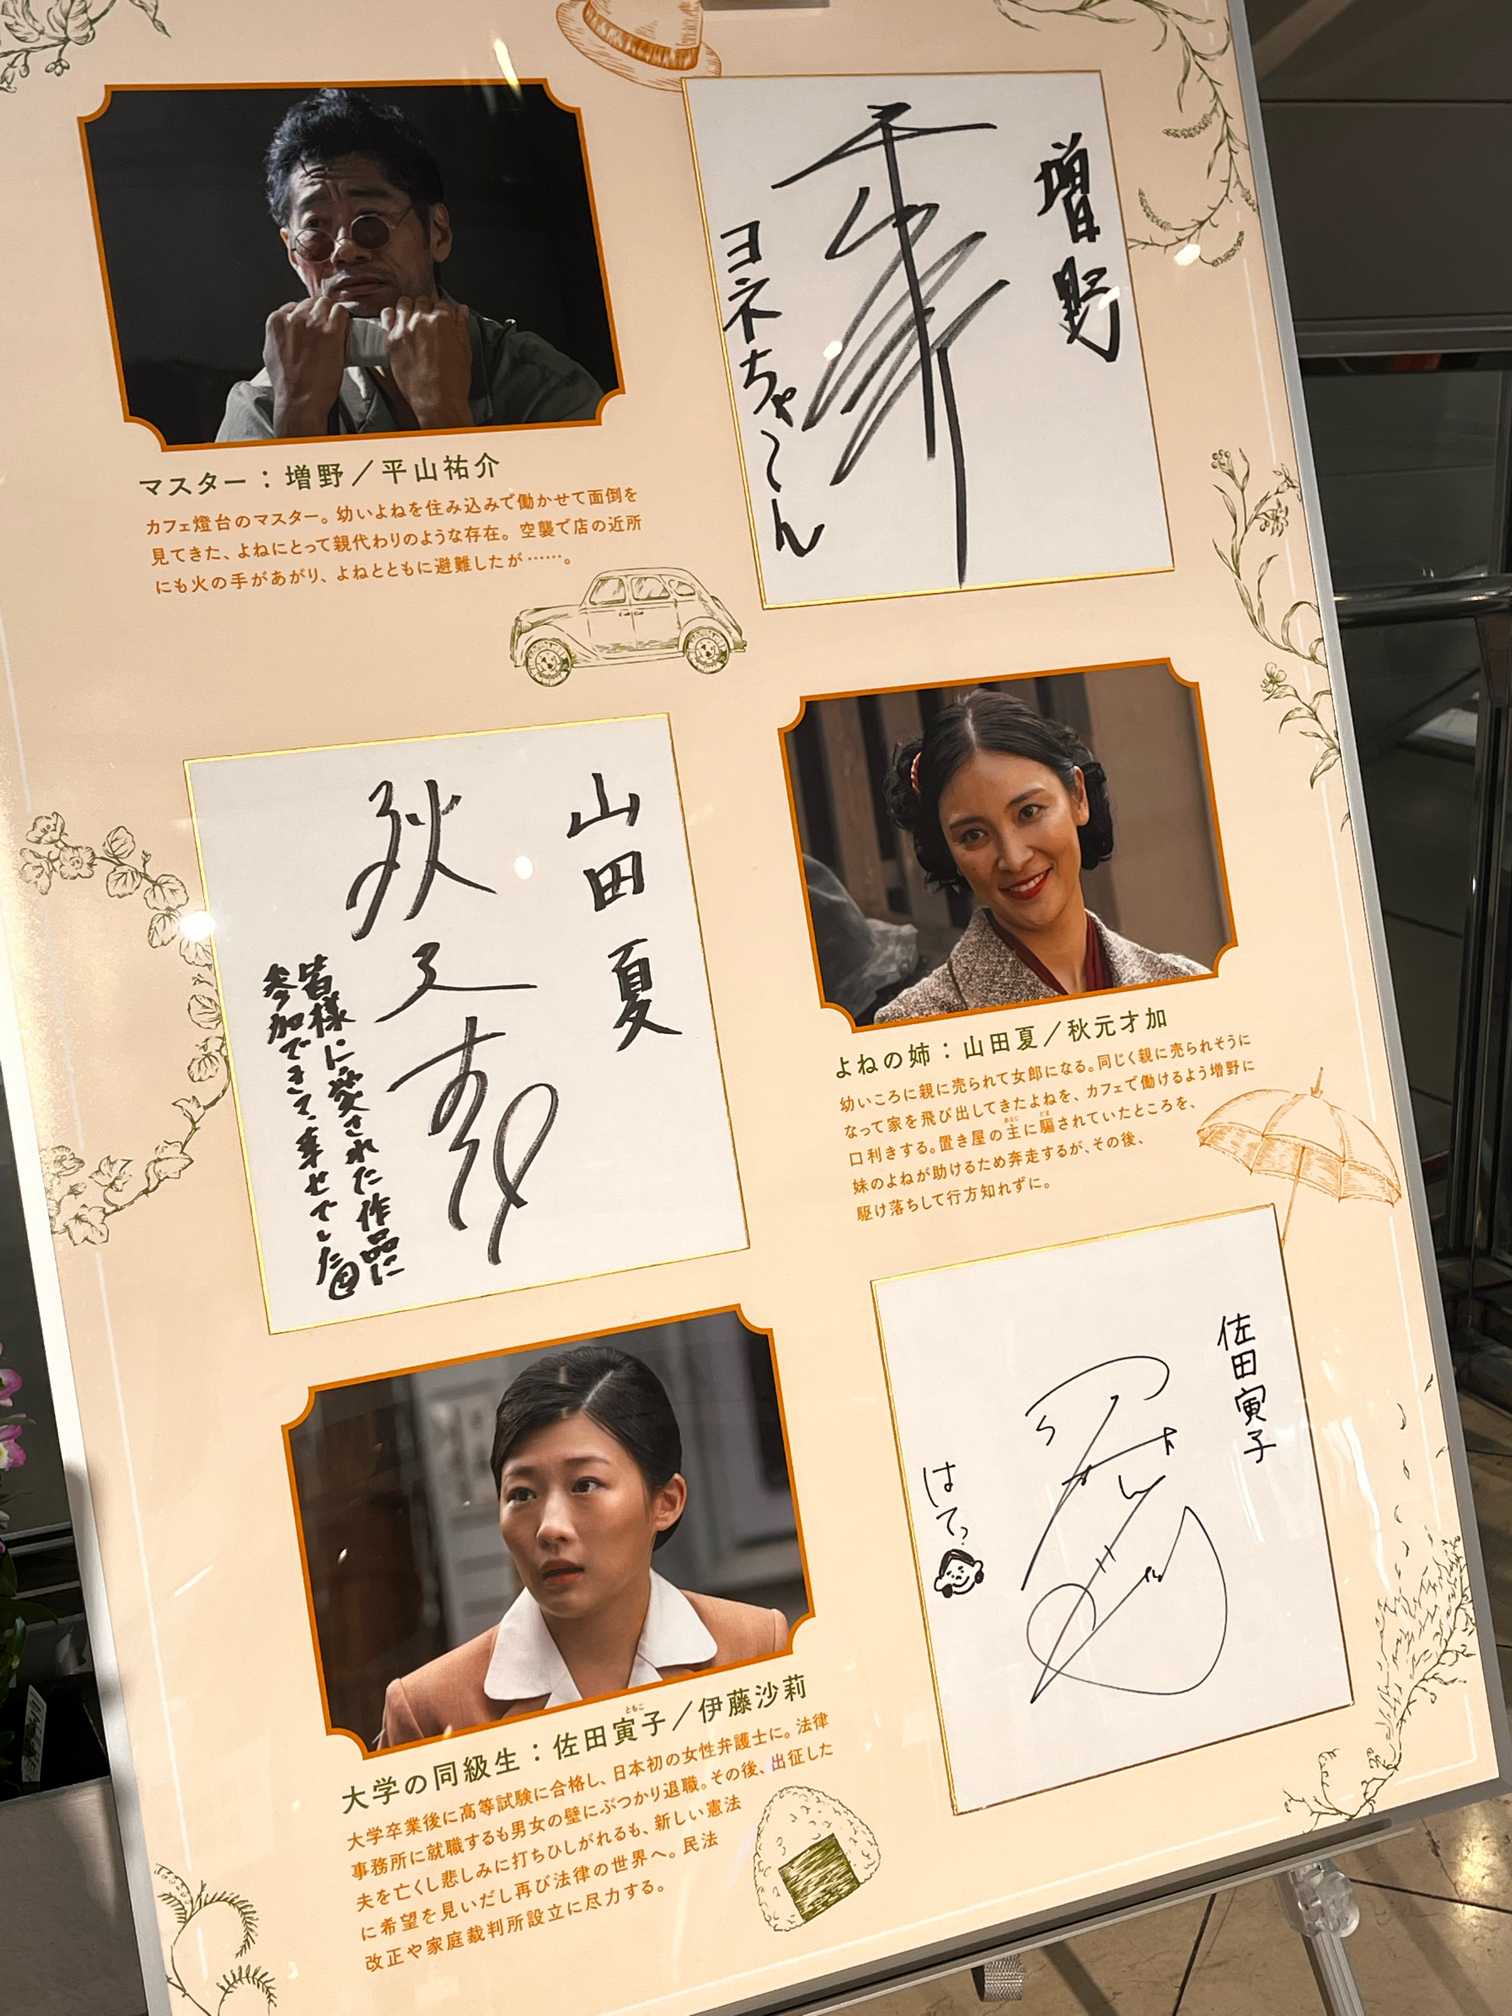 増野
ヨネちゃ〜ん
マスター：増野／平山祐介
カフェ燈台のマスター。幼いよねを住み込みで働かせて面倒を
見てきた、よねにとって親代わりのような存在。空襲で店の近所
にも火の手があがり、よねとともに避難したが……。
山田夏
皆様に愛された作品に
参加できて、幸せでした
よねの姉：山田夏／秋元才加
幼いころに親に売られて女郎になる。同じく親に売られそうに
なって家を飛び出してきたよねを、カフェで働けるよう増野に
口利きする。置き屋の主に騙されていたところを、
妹のよねが助けるため奔走するが、その後、
駆け落ちして行方知れずに。
佐田寅子
はて?
ともこ
大学の同級生：佐田寅子／伊藤沙莉
大学卒業後に高等試験に合格し、日本初の女性弁護士に。法律
事務所に就職するも男女の壁にぶつかり退職。その後、出征した
夫を亡くし悲しみに打ちひしがれるも、新しい憲法
に希望を見いだし再び法律の世界へ。民法
改正や家庭裁判所設立に尽力する。